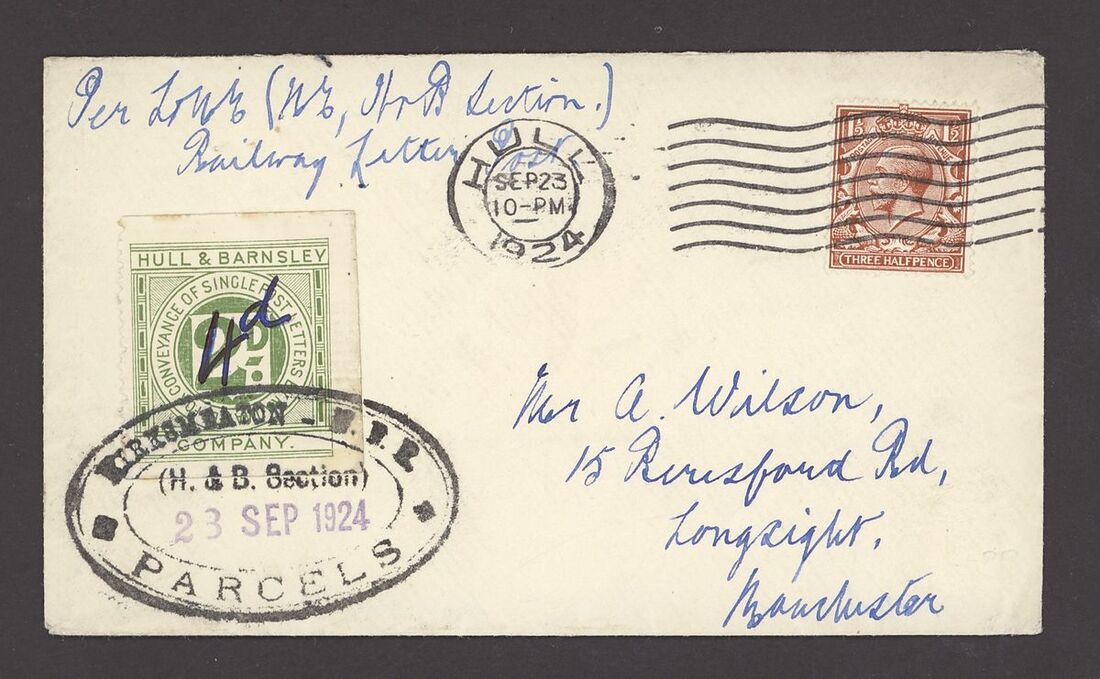 Per L&NE (NE, H&B Section.)
Railway Letter Post
HULL
SEP 23
10-PM
1924
THREE HALFPENCE
HULL & BARNSLEY
CONVEYANCE OF SINGLE POST LETTERS
2D
4d
COMPANY.
KIRKSMEATON
(H. & B. Section)
23 SEP 1924
PARCELS
Mr A. Wilson,
15 Beresford Rd,
Longsight,
Manchester